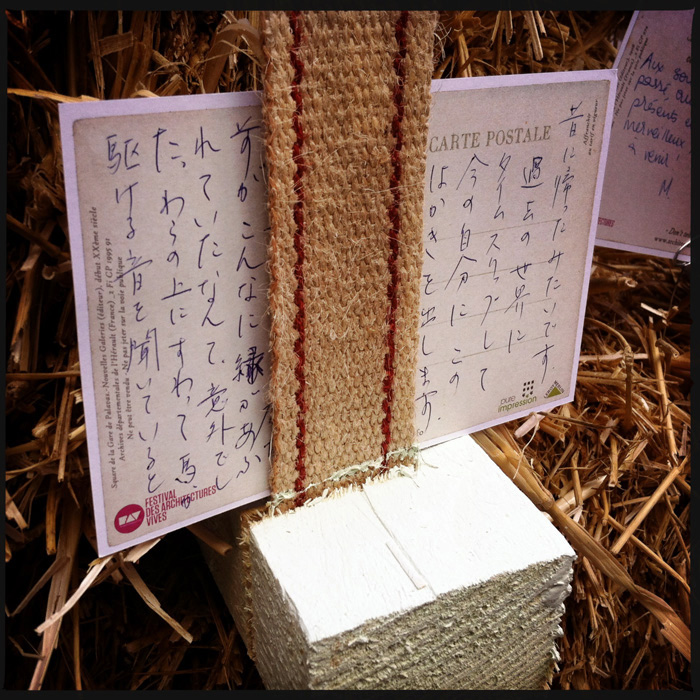 がこんなに緑があふ
れていたなんて、意外でし
た。わらの上にすわって馬が
駆ける音を聞いていると
昔に帰ったみたいです。
過去の世界に
タイムスリップして
今の自分にこの
はがきを出します。
CARTE POSTALE
Affranchir
au tarif en vigueur
Square de la Gare de Palavas. Nouvelles Galeries (éditeur), début XXème siècle
Archives départementales de l'Hérault (France) _2 Fi CP 1995 91
Ne peut être vendu - Ne pas jeter sur la voie publique
FESTIVAL
DES ARCHITECTURES
VIVES
pure
impression
Aux
passé,
présents
merveilleux
à venir!
M.